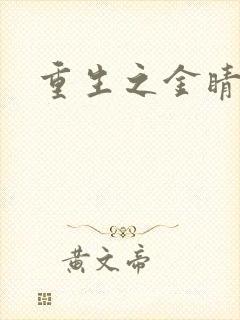 重生之金睛
黄文帝